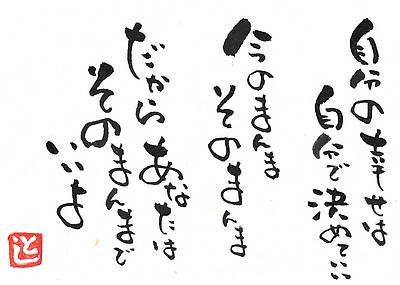 自分の幸せは
自分で決めていい
今のまんま
そのまんま
だから あなたは
そのまんまで
いいよ
とし